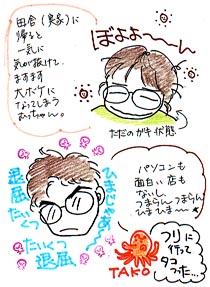 田舎(実家)に
帰ると
一気に
気が抜けて、
ますます
大ボケに
なってしまう
あっちゃん。
ぼよよ〜〜ん
ただのガキ状態
退屈
たいくつ
たいくつ
退屈
パソコンも
面白い店も
ないし、
つまらん つまらん
ひま ひま〜〜
TAKO
つりに
行って
タコ
つった…